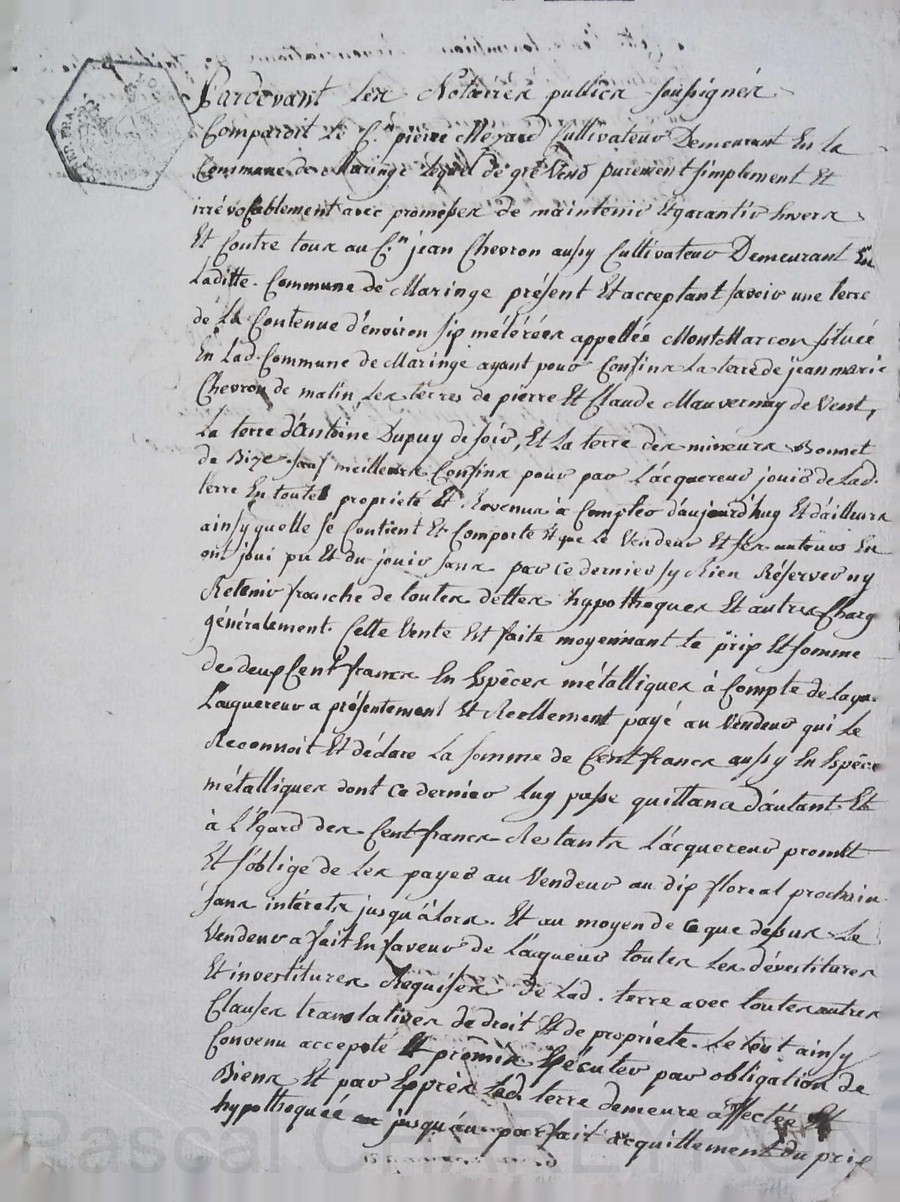 Pardevant les Notaires publics soussignés
Comparoit Le C.en pierre Meyard Cultivateur Demeurant En la
Commune de Maringe lequel de gré Vend purement simplement Et
irrévocablement avec promesses de maintenir Et garantir Envers
Et Contre tous au C.en jean Chevron aussy Cultivateur Demeurant En
Laditte Commune de Maringe présent Et acceptant savoir une terre
de La Contenue d'environ six métérées appellée MontMarcon située
En Lad. Commune de Maringe ayant pour Confins La terre de jean marie
Chevron de matin Les terres de pierre Et Claude Mauvernay de Vent,
La terre d'Antoine Dupuy de soir, Et La terre des mineurs Bonnet
de Bize sauf meilleurs Confins pour par L'acquereur jouir de Lad.
terre En toutes propriété Et Revenus à Compter d'aujourd'huy Et d'ailleurs
ainsy quelle se Contient Et Comporte Et que Le Vendeur Et ses auteurs En
ont joui pu Et du jouir sans par ce dernier sy Rien Réserver ny
Retenir franche de toutes dettes hypotheques Et autres Charg
généralement. Cette Vente Est faite moyennant Le prix Et somme
de deux Cent francs En Espêces métalliques à Compte de laqu.
L'acquereur a présentement Et Réellement payé au Vendeur qui Le
Reconnoit Et déclare La somme de Cent francs aussy En Espêces
métalliques dont ce dernier luy passe quittance d'autant Et
à L'Egard des Cent francs Restants L'acquereur promet
Et s'oblige de Les payer au Vendeur au dix floreal prochain
sans intérets jusqu'àlors. Et au moyen de ce que dessus Le
Vendeur a fait En faveur de L'aqueur toutes Les dévestitures
Et investitures Requises de Lad. terre avec toutes autres
Clauses translatives de droit Et de propriété. Le tout ainsy
Convenu accepté Et promis Exécuter par obligation de
Biens Et par Exprès Lad. terre demeure affectée Et
hypothequée jusqu'au parfait acquillement du prix